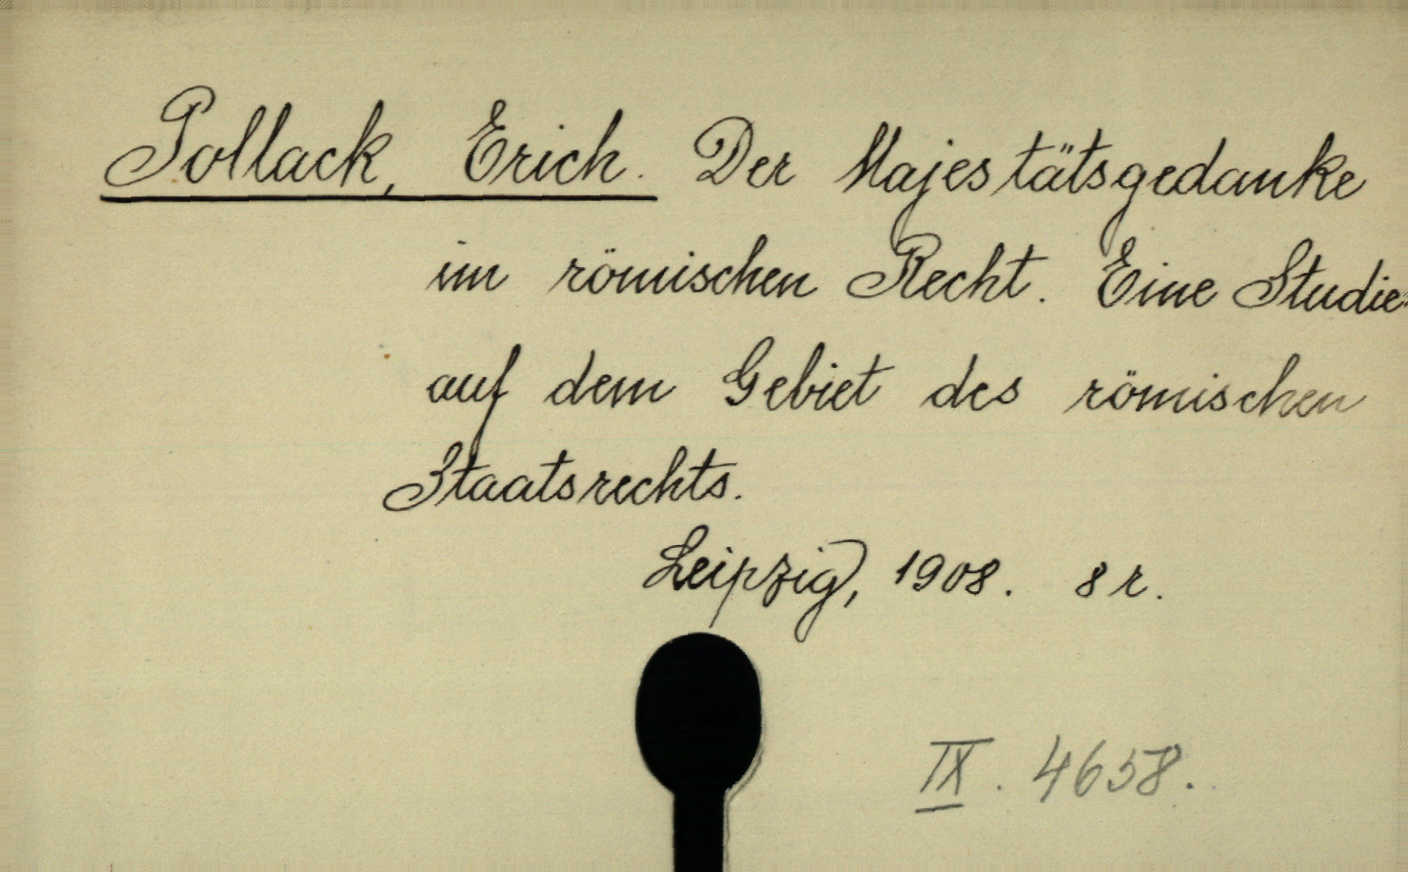 Pollack, Erich. Der Majestätsgedanke
im römischen Recht. Eine Studie
auf dem Gebiet des römischen
Staatsrechts.
Leipzig, 1908. 8 r.
IX. 4658.